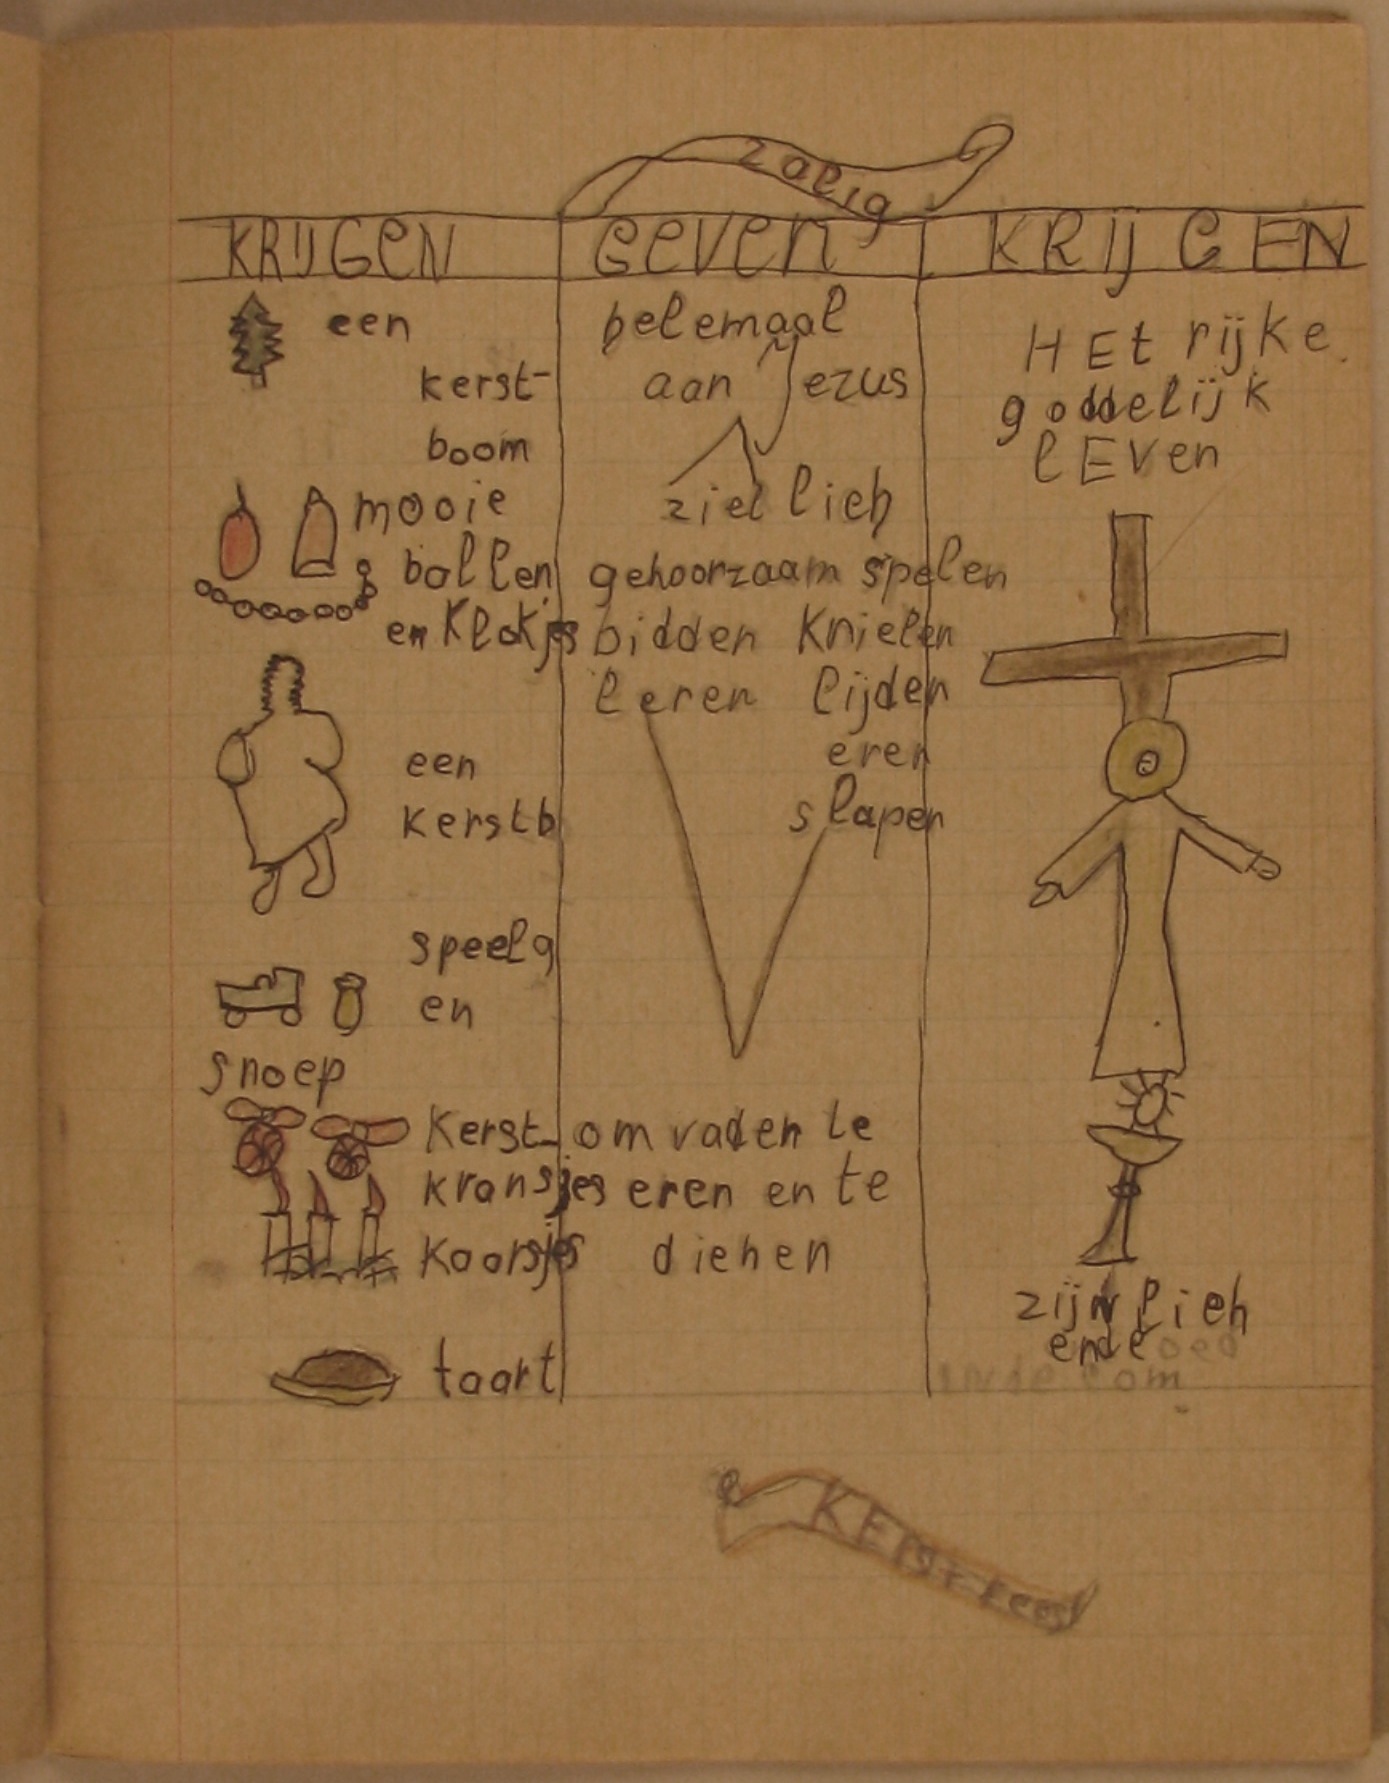 zalig
KRIJGEN
een
kerst-
boom
mooie
bollen
en Klokjes
een
kerstb
speelg
en
snoep
Kerst-
kransjes
kaarsjes
taart
GEVEN
helemaal
aan Jezus
ziel lich
gehoorzaam spelen
bidden Knielen
leren lijden
eren
slapen
om vader te
eren en te
dienen
KRIJGEN
HET rijke
goddelijk
lEVen
zijn lich
ende
KERSTFEEST